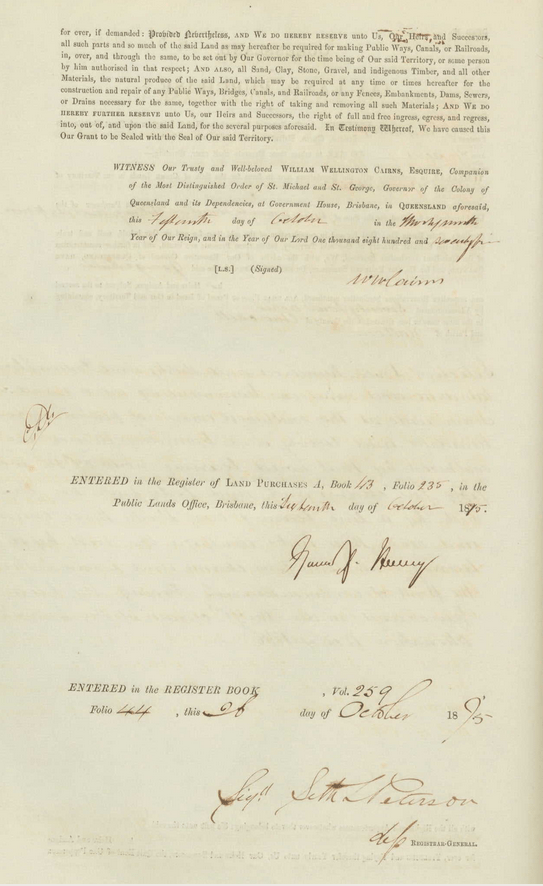 for ever, if demanded: Provided Nevertheless, AND WE DO HEREBY RESERVE unto Us, Our Heirs, and Successors,
all such parts and so much of the said Land as may hereafter be required for making Public Ways, Canals, or Railroads,
in, over, and through the same, to be set out by Our Governor for the time being of Our said Territory, or some person
by him authorised in that respect; AND ALSO, all Sand, Clay, Stone, Gravel, and indigenous Timber, and all other
Materials, the natural produce of the said Land, which may be required at any time or times hereafter for the
construction and repair of any Public Ways, Bridges, Canals, and Railroads, or any Fences, Embankments, Dams, Sewers,
or Drains necessary for the same, together with the right of taking and removing all such Materials; AND WE DO
HEREBY FURTHER RESERVE unto Us, our Heirs and Successors, the right of full and free ingress, egress, and regress,
into, out of, and upon the said Land, for the several purposes aforesaid. In Testimony Whereof, We have caused this
Our Grant to be Sealed with the Seal of Our said Territory.
WITNESS Our Trusty and Well-beloved WILLIAM WELLINGTON CAIRNS, ESQUIRE, Companion
of the Most Distinguished Order of St. Michael and St. George, Governor of the Colony of
Queensland and its Dependencies, at Government House, Brisbane, in QUEENSLAND aforesaid,
this Fifteenth day of October in the Thirty ninth
Year of Our Reign, and in the Year of Our Lord One thousand eight hundred and seventy five
[L.S.] (Signed)
WWCairns
ENTERED in the Register of LAND PURCHASES A, Book 43, Folio 235, in the
Public Lands Office, Brisbane, this Sixteenth day of October 1875.
ENTERED in the REGISTER BOOK, Vol. 259
Folio 44, this 26 day of October 1875
Sigd Seth L Peterson
dep REGISTRAR-GENERAL.